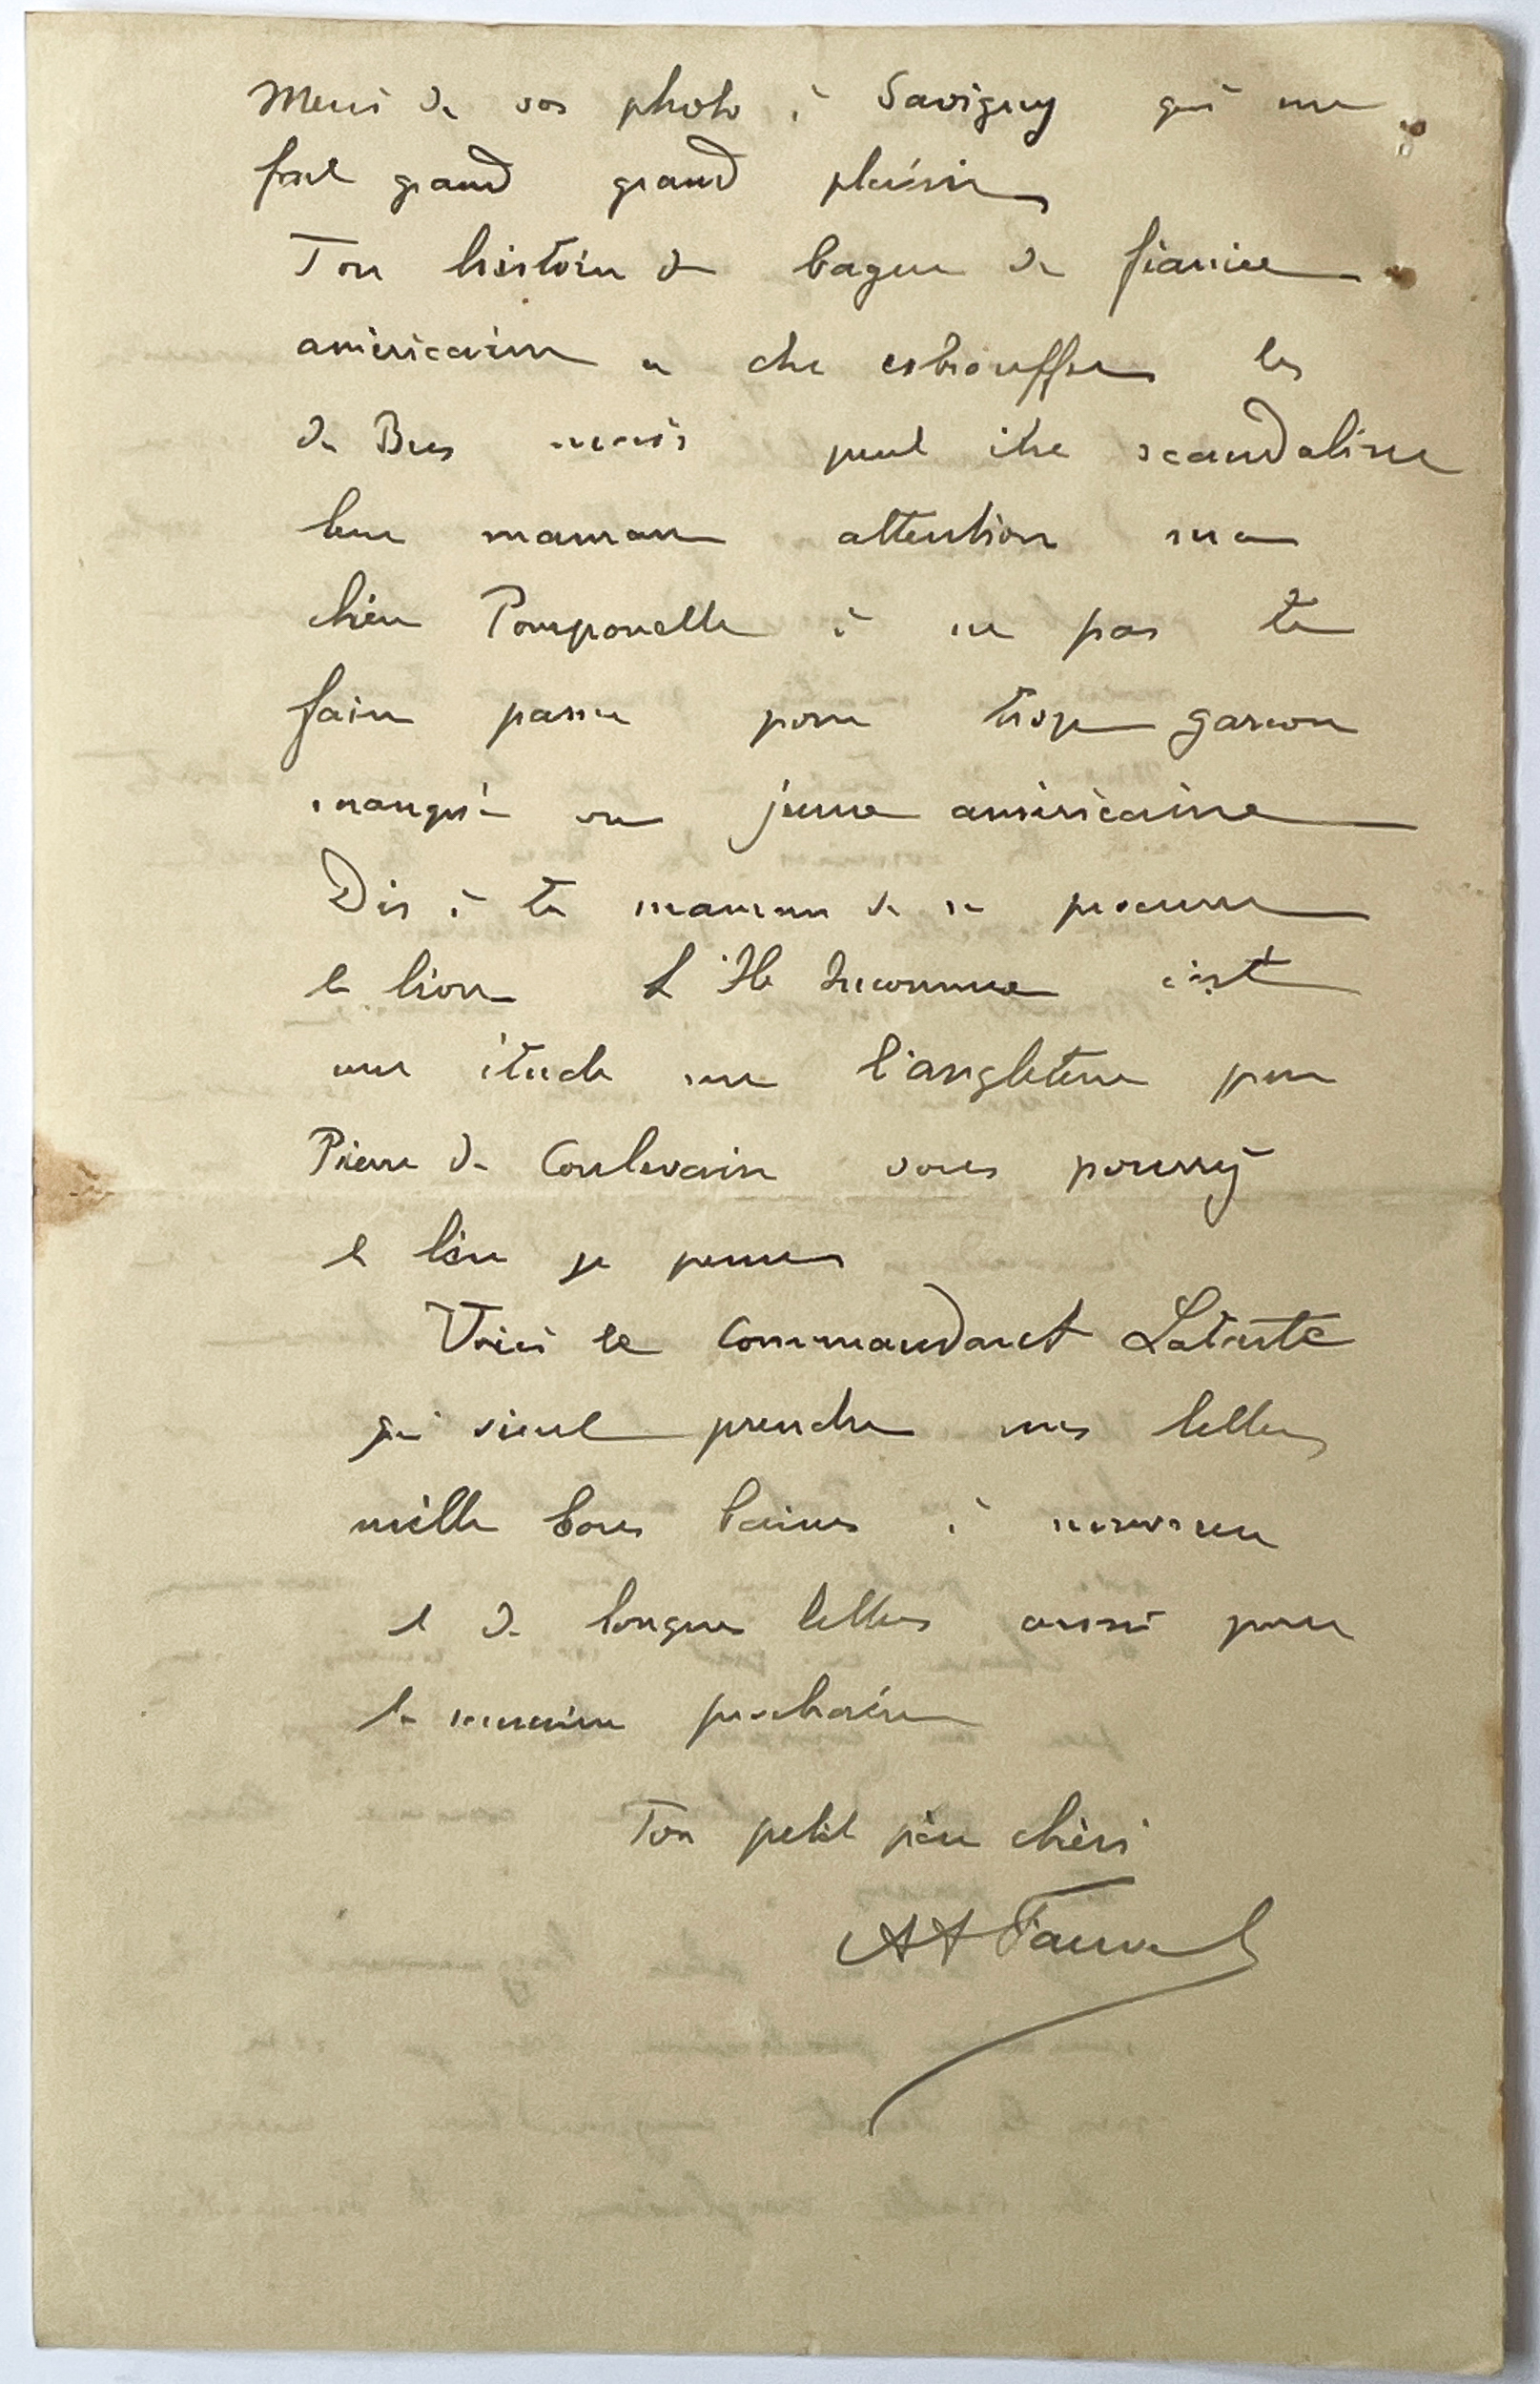 Merci de vos photo à Savigny qui me
font grand grand plaisir
Ton histoire de bague de fiancée
américaine a dû esbrouffer les
de Bus mais peut être scandaliser
leur maman attention ma
chère Pomponelle à ne pas te
faire passer pour trop garçon
manqué ou jeune américaine
Dis à ta maman de se procurer
le livre L'Ile Inconnue c'est
une étude sur l'angleterre par
Pierre de Coulevain vous pouvez
le lire je pense
Voici le Commandant
qui vient prendre nos lettres
mille bons baisers à
et de longues lettres aussi pour
la semaine prochaine
Ton petit père chéri
AA Fauvel